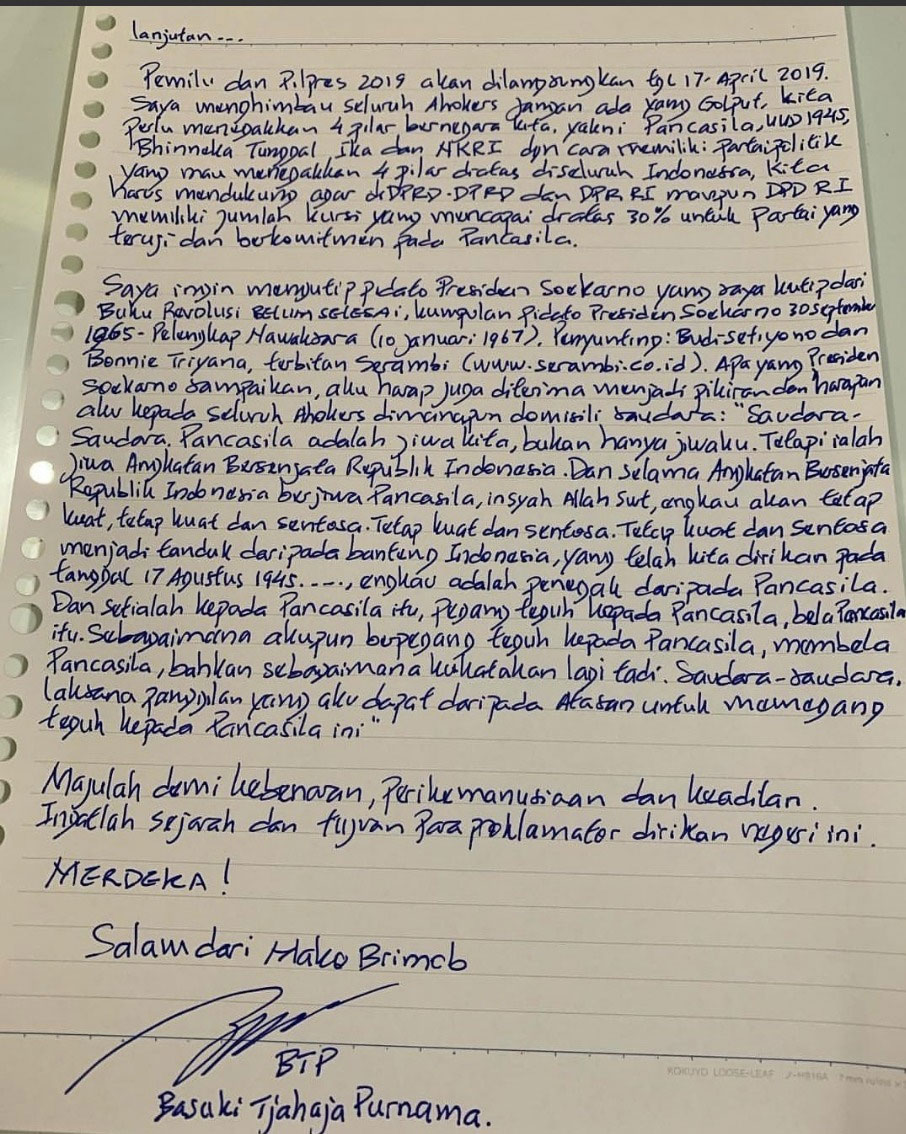 lanjutan...
Pemilu dan Pilpres 2019 akan dilangsungkan tgl 17-April 2019.
Saya menghimbau seluruh Ahokers jangan ada yang Golput, kita
Perlu menegakkan 4 pilar bernegara kita, yakni Pancasila, UUD 1945,
Bhinneka Tunggal Ika dan NKRI dgn cara memiliki partai politik
yang mau menegakkan 4 pilar diatas diseluruh Indonesia, kita
harus mendukung agar di DPRD-DPRD dan DPR RI maupun DPD RI
memiliki jumlah kursi yang mencapai diatas 30% untuk Partai yang
teruji dan berkomitmen pada Pancasila.
Saya ingin mengutip pidato Presiden Soekarno yang saya kutip dari
Buku Revolusi BELUM SELESAI, kumpulan Pidato Presiden Soekarno 30 September
1965 - Pelengkap Nawaksara (10 januari 1967). Penyunting: Budi-Setiyono dan
Bonnie Triyana, terbitan Serambi (www.serambi.co.id). Apa yang Presiden
Soekarno sampaikan, aku harap juga diterima menjadi pikiran dan harapan
aku kepada seluruh Ahokers dimanapun domisili saudara: "Saudara-
Saudara. Pancasila adalah jiwa kita, bukan hanya jiwaku. Tetapi ialah
Jiwa Angkatan Bersenjata Republik Indonesia. Dan selama Angkatan Bersenjata
Republik Indonesia berjiwa Pancasila, insyah Allah swt, engkau akan tetap
kuat, tetap kuat dan sentosa. Tetap kuat dan sentosa. Tetap kuat dan sentosa
menjadi tanduk daripada banteng Indonesia, yang telah kita dirikan pada
tanggal 17 Agustus 1945. ...., engkau adalah penegak daripada Pancasila.
Dan setialah kepada Pancasila itu, pegang teguh kepada Pancasila, bela Pancasila
itu. Sebagaimana akupun berpegang teguh kepada Pancasila, membela
Pancasila, bahkan sebagaimana kukatakan lagi tadi. Saudara-saudara,
laksana panggilan yang aku dapat daripada Atasan untuk memegang
teguh kepada Pancasila ini"
Majulah demi kebenaran, Perikemanusiaan dan keadilan.
Ingatlah sejarah dan tujuan Para proklamator dirikan negeri ini.
MERDEKA!
Salam dari Mako Brimob
BTP
Basuki Tjahaja Purnama.
KOKUYO LOOSE-LEAF